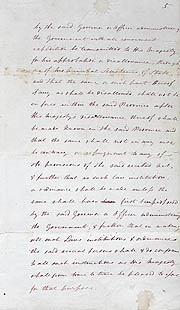 5
by the said Governor or Officer administering
the Government with all convenient
expedition be transmitted to His Majesty
for his approbation or disallowance, through
one of his principal Secretaries of State
and that the same or any part thereof
if any, as shall be disallowed, shall not be
in force within the said Province after
His Majesty's disallowance thereof shall
be made known in the said Province and
that the same shall not in any way
be contrary or repugnant to any of
the provisions of the said recited Act, &
further that no such law institution
or ordinance shall be made unless the
same shall have been first proposed
by the said Governor or Officer administering
the Government, & further that in making
all such Laws institutions & ordinances
the said several persons shall & do conform
all such instructions as His Majesty
shall from time to time be pleased to give
for that purpose.